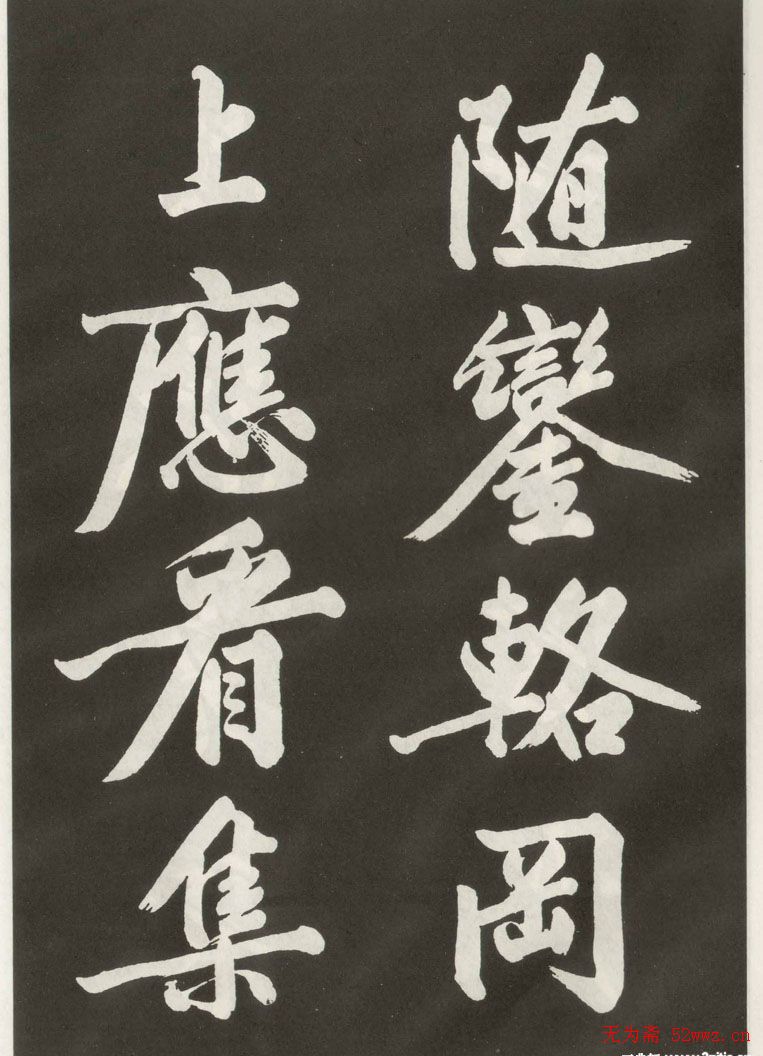 随鑾輅岡
上應看集
无为斋.52wwz.cn